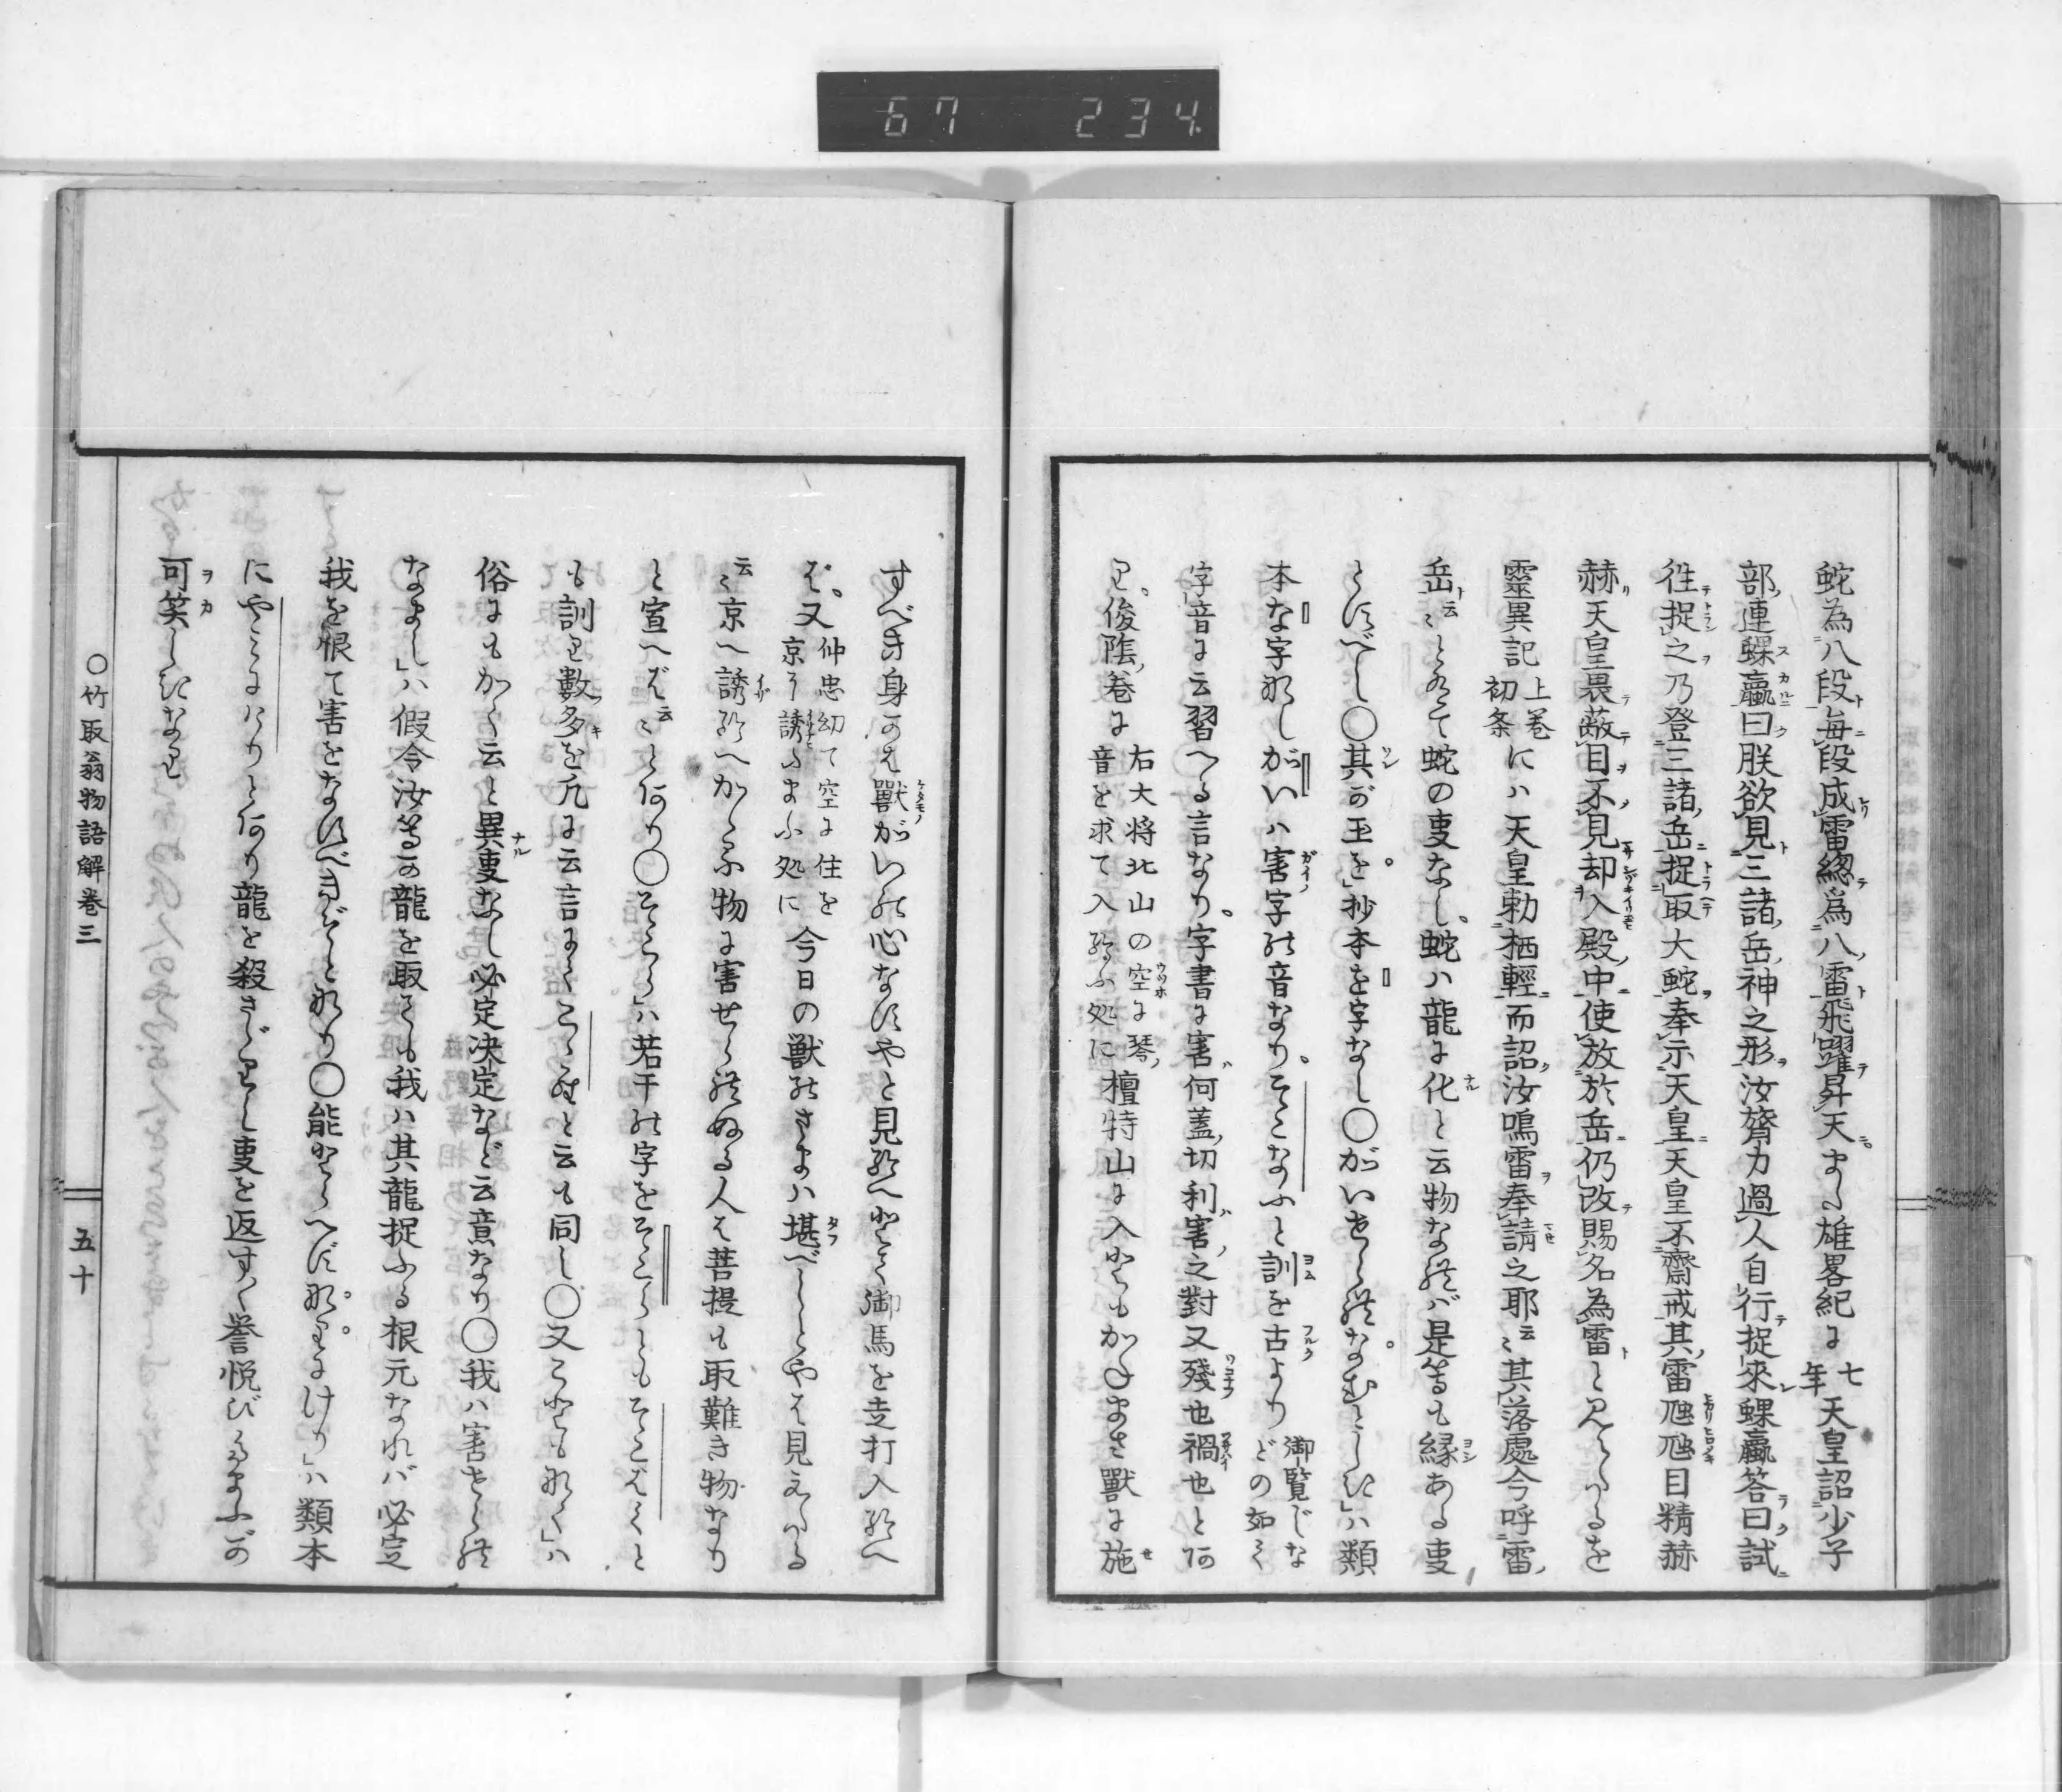 67 234
蛇為八段毎段成雷緫爲八雷飛躍昇天また雄畧紀に七年天皇詔少子
部連蜾蠃曰朕欲見三諸岳神之形汝膂力過人自行捉來蜾蠃答曰試
徃捉之乃登三諸岳捉取大蛇奉示天皇天皇不齋戒其雷虺虺目精赫
赫天皇畏蔽目不見却入殿中使放於岳仍改賜名為雷と見えたるを
靈異記上巻初条にハ天皇勅栖輕而詔汝鳴雷奉請之耶云〻其落處今呼雷
岳ト云〻とありて蛇の事なし、蛇ハ龍に化と云物なればバ是等も縁ある事
とすべし〇其が玉を」抄本を字なし〇がいせられなむとしき」ハ類
本な字なしがいハ害字の音なり。そこなふと訓を古より御覧じなどの如く
字音に云習へる言なり。字書に害何蓋切利害之對又殘也禍也とあ
り、俊蔭巻に右大将北山の空に琴音を求て入給ふ処に檀特山に入とも かばねまさ獸に施
すべき身かは獸がいの心なすやと見給へとく御馬を走打入給へ
ば、又仲忠幼て空に住を京に誘ふまふ処に今日の獣のさまハ堪べしとやは見えつる
云〻京へ誘給へかゝる物に害せられぬる人は菩提も取難き物なり
と宣へば云〻とあり〇そこら」ハ若干の字をそこらともそこばくと
も訓り數多を凡に云言にてこゝだと云も同し〇又ことも なく」ハ
俗にもかく云と異事なし必定決定など云意なり〇我ハ害せられ
なまし」ハ假令汝等が龍を取ても我ハ其龍捉ふる根元なれバ必定
我を恨て害をなすべきぞとなり〇能とらへずなりにけり」ハ類本
にやミにけりとあり龍を殺さゞりし事を返すく誉悦びたまふが
可笑しきなり
〇竹取翁物語解巻三
五十